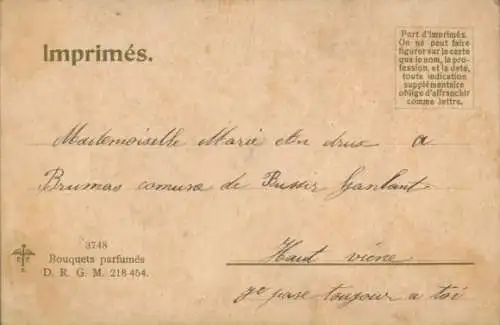 Imprimés.
Port d'imprimés.
On ne peut faire
figurer sur la carte
que le nom, la pro-
fession, et la date,
toute indication
supplémentaire
oblige d'affranchir
comme lettre.
Mademoiselle Marie a
Brumas comune de Bussir Ganlant
3748
Bouquets parfumés
D. R. G. M. 218 454.
Haut viène
je pase toujour a toi